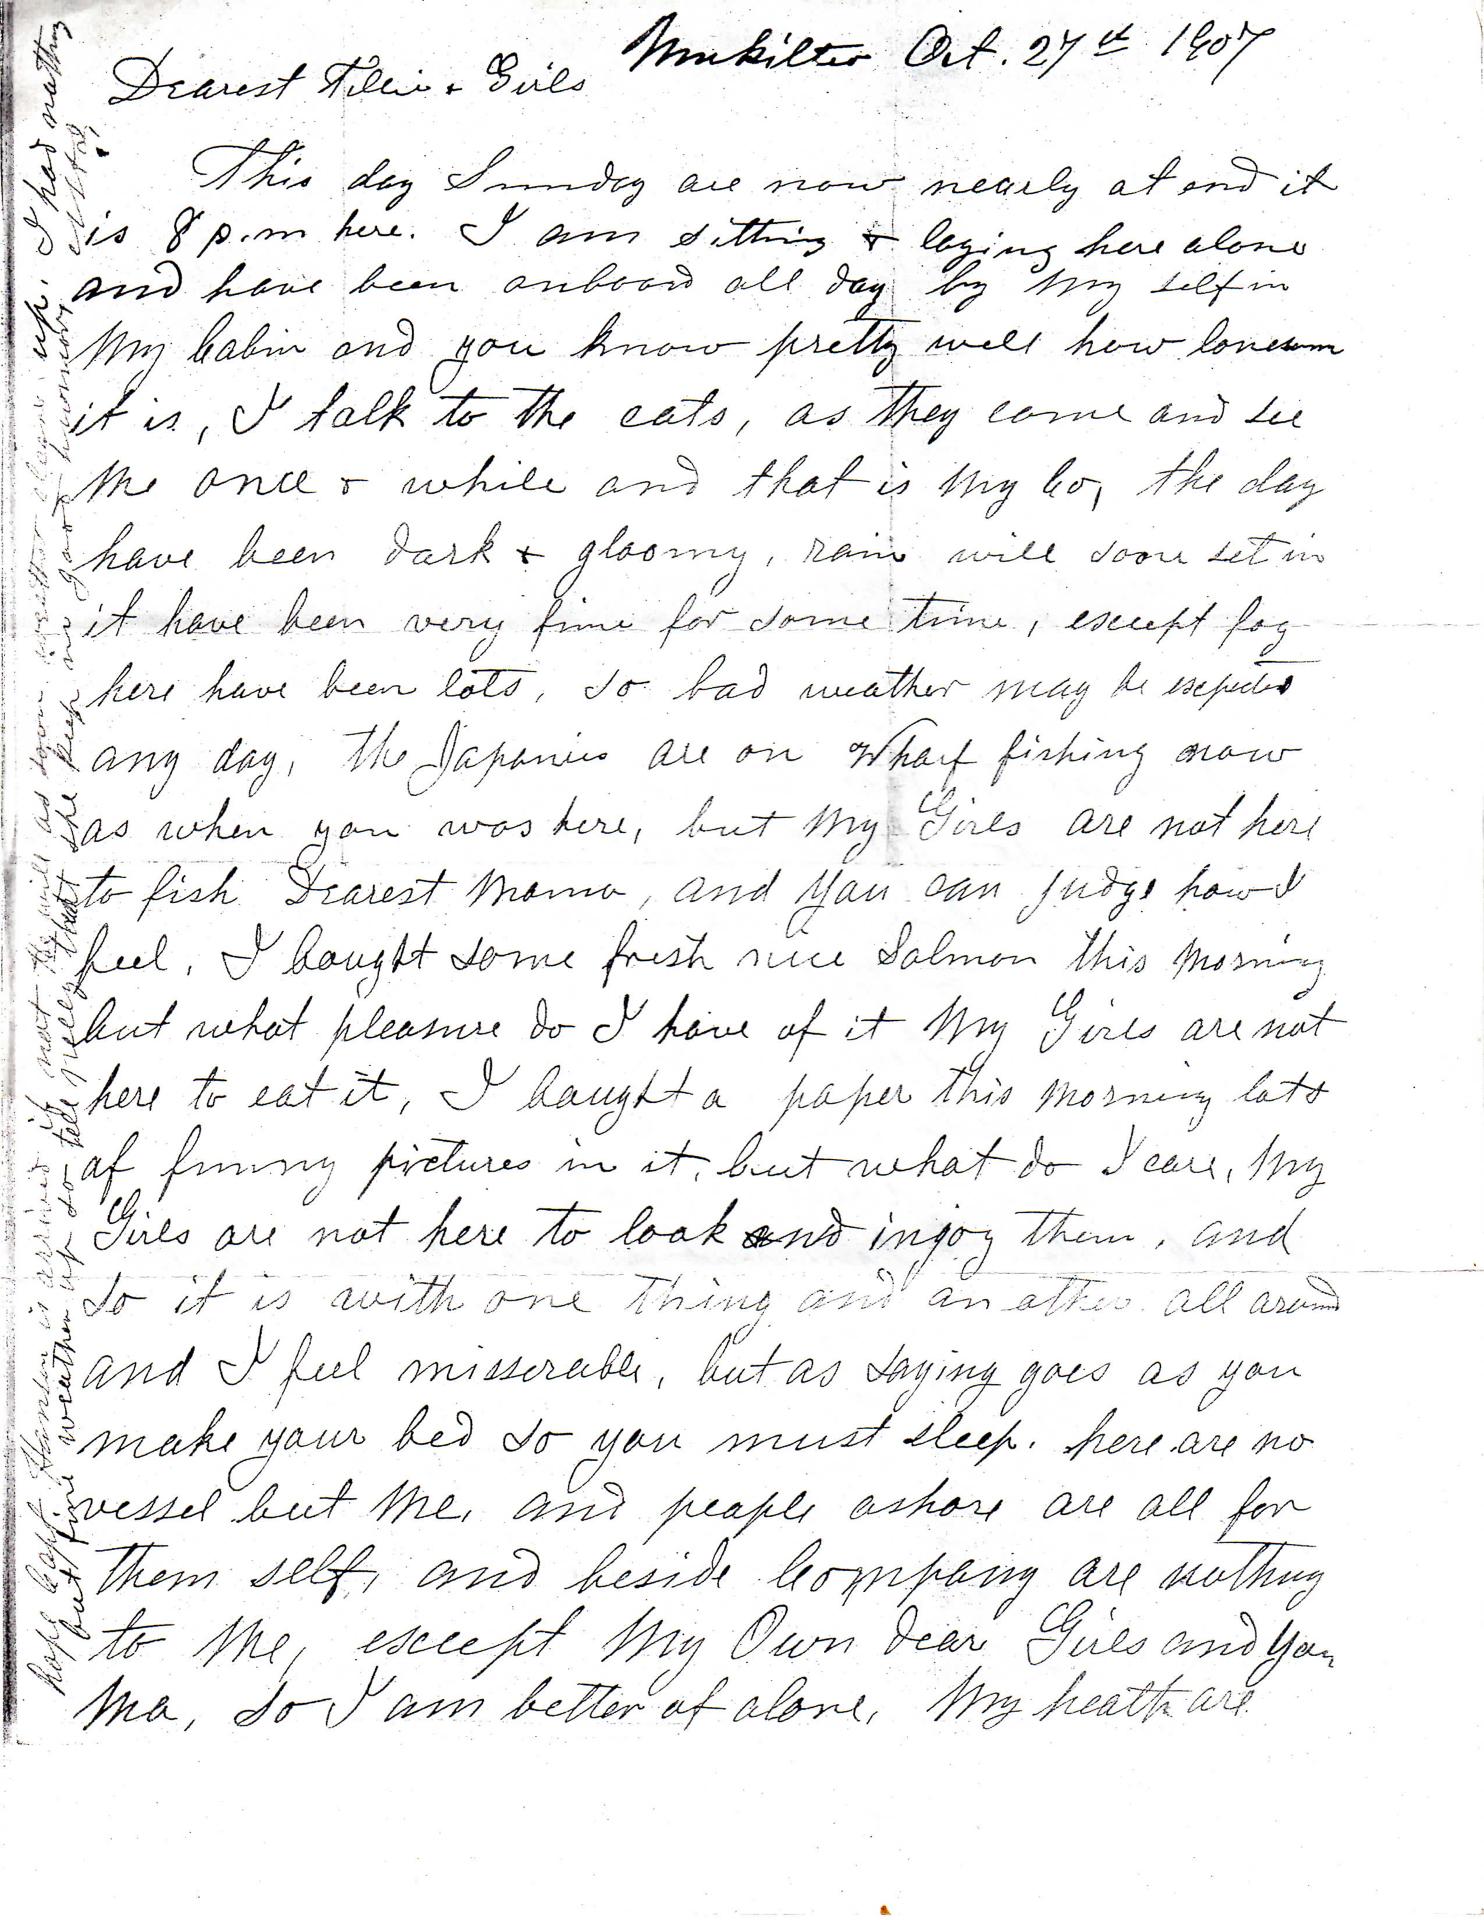 Mukilteo Oct. 27th 1907
Dearest + Girls
This day Sunday are now nearly at end it
is 8 p.m here. I am sitting + laying here alone
and have been onboard all day by my self in
my Cabin and you know pretty well how lonesom
it is, I talk to the cats, as they come and see
me once + while and that is my Co, the day
have been dark + gloomy, rain will soon set in
it have been very fine for some time, except fog
here have been lots, so bad weather may be expected
any day, the Japanies are on Wharf fishing now
as when you was here, but my Girls are not here
to fish Dearest Mama, and you can judge how I
feel, I bought some fresh nice Salmon this morning
but what pleasure do I have of it my Girls are not
here to eat it, I bought a paper this morning lots
of funny pictures in it, but what do I care, my
Girls are not here to look and injoy them, and
so it is with one thing and an other all around
and I feel misserable, but as saying goes as you
make your bed so you must sleep. here are no
vessel but me, and people ashore are all for
them self, and beside Company are nothing
to me, except my Own dear Girls and you
Ma, so I am better of alone, My heath are
hope Capt. Hansen is arrived if not he will as soon weather clears up, I had nothing
but fine weather up so tell Nelly that she keep in good humour